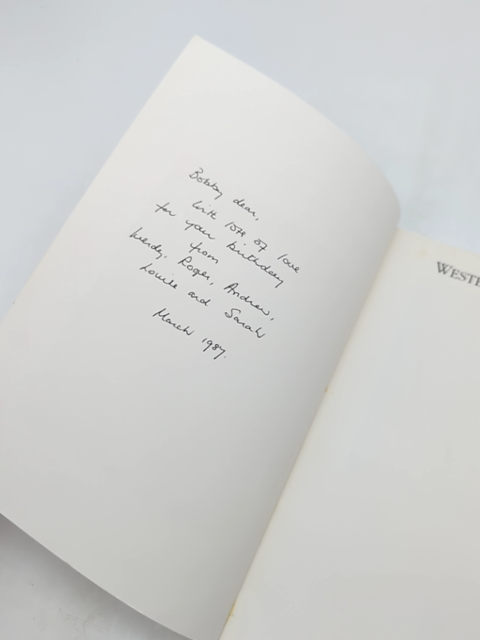 Bobby dear,
with lots of love
for your birthday
from
Wendy, Roger, Andrew,
Louise and Sarah
March 1987.
WESTE